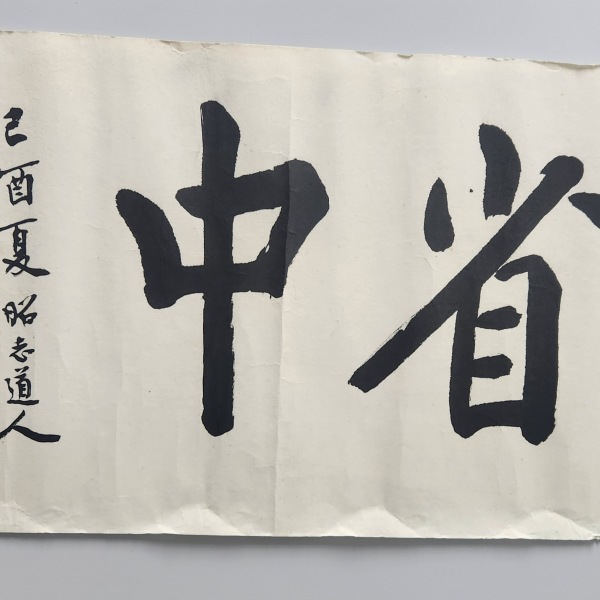 省中
己酉夏 昭志道人